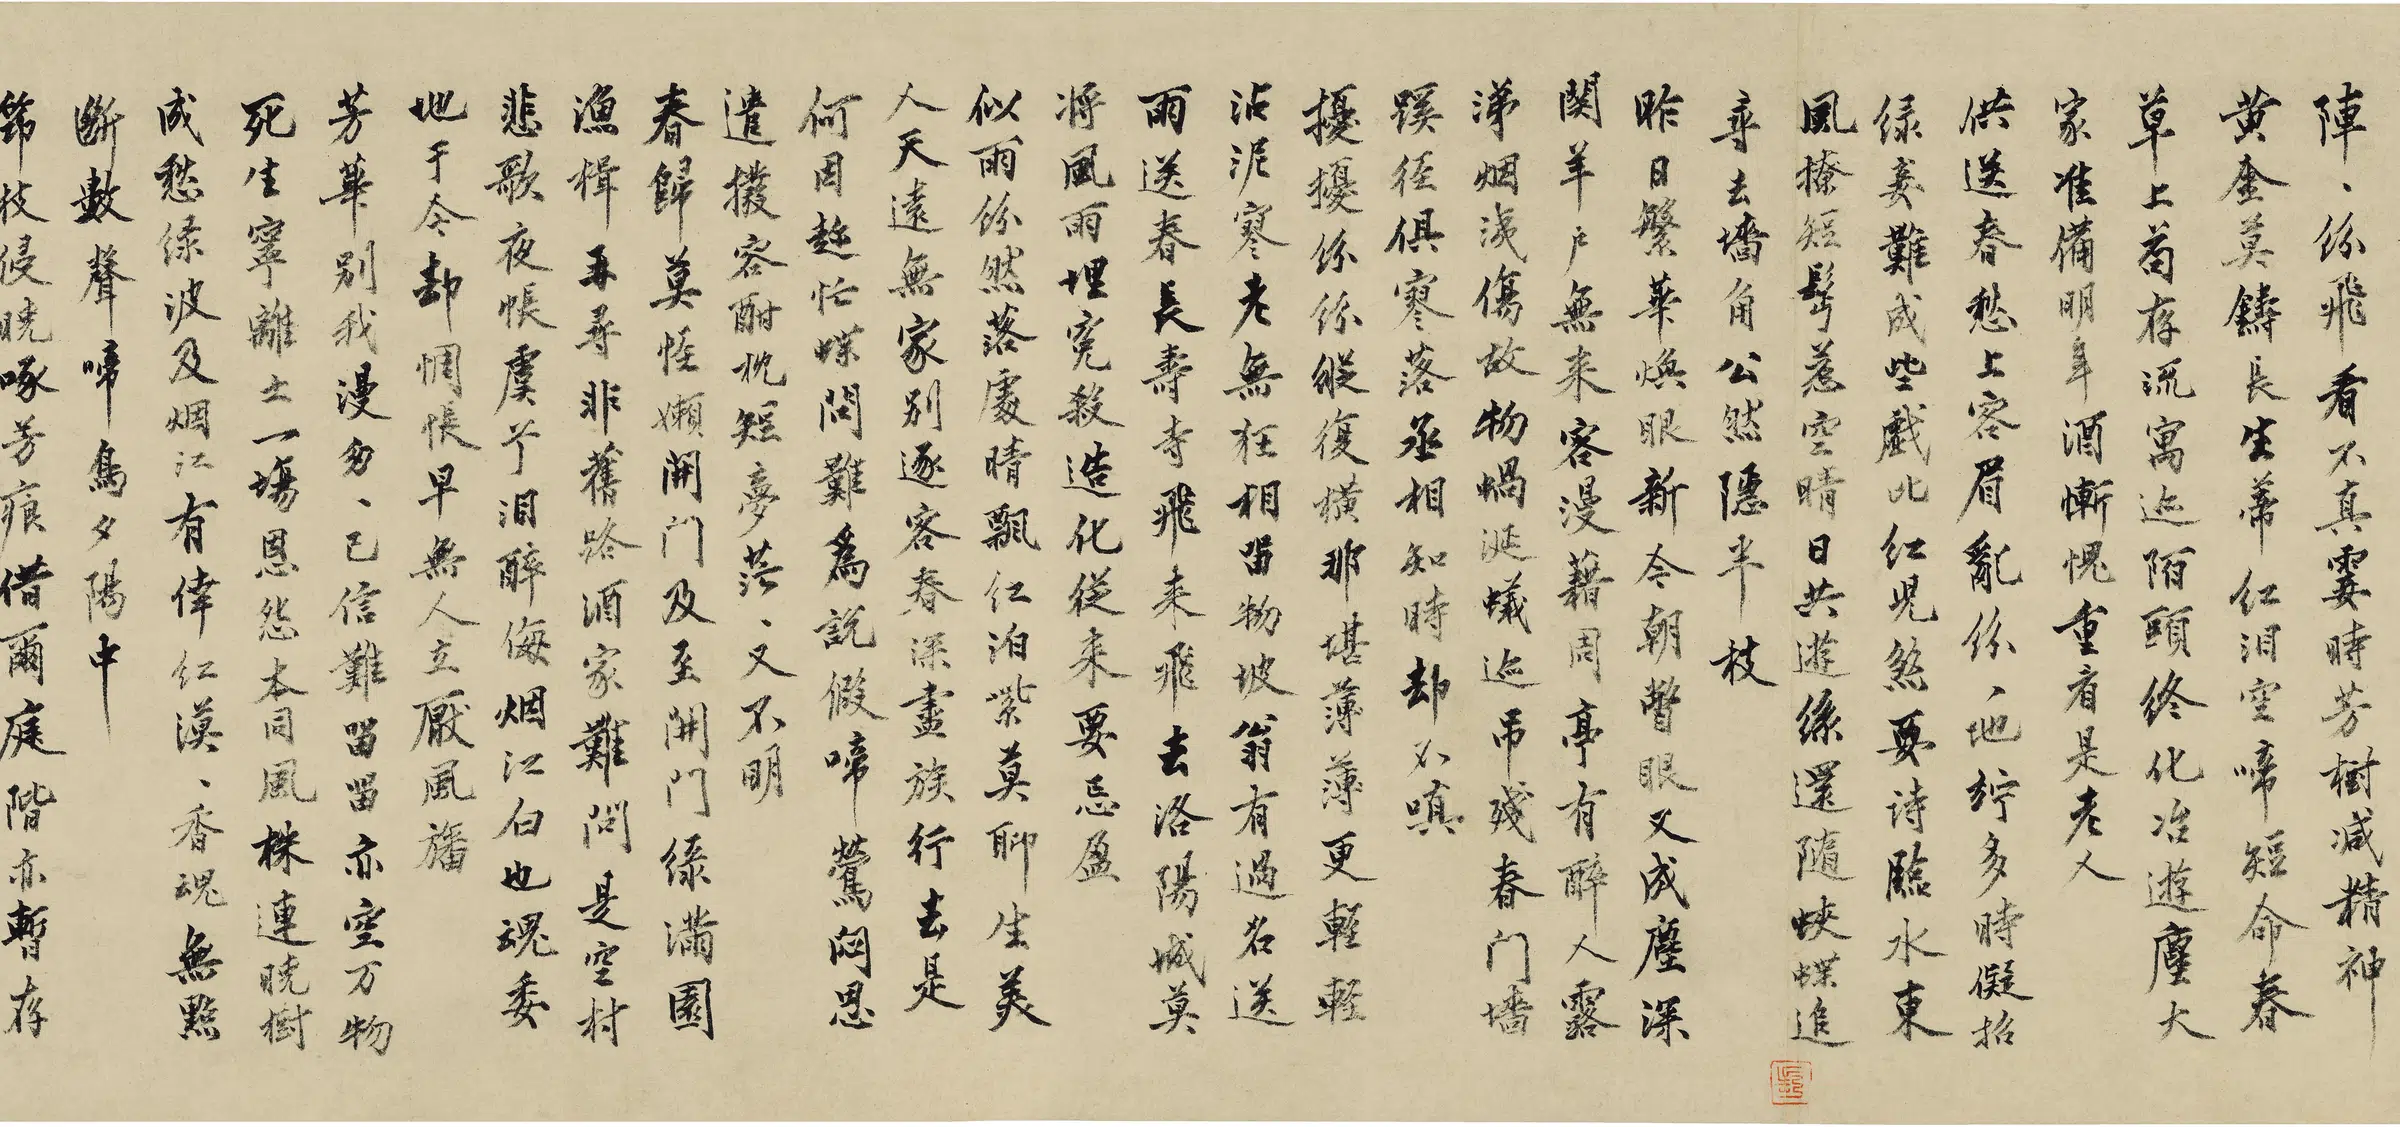 陣、紛飛看不真霎時芳樹減精神
黄金莫鑄長生蒂紅淚空啼短命春
草上苟存流寓迹陌頭終化冶遊塵大
家准備明年酒慚愧重看是老人
供送春愁上客眉亂紛、地竚多時儗招
綠妾難成些戲比紅児煞要詩臨水東
風撩短髩惹空晴日共遊絲還隨蛺蝶追
尋去墻角公然隱半枝
昨日繁華煥眼新今朝瞥眼又成塵深
関羊户無来客漫藉周亭有醉人露
涕烟洟傷故物蝸涎蟻迹吊殘春门墻
蹊徑俱寥落丞相知時却不嗔
擾擾紛紛縱復横那堪薄薄更軽軽
沾泥寒老無狂相留物坡翁有過名送
雨送春長壽寺飛来飛去洛陽城莫
将風雨埋冤殺造化從来要忌盈
似雨紛然落處晴飄红泊紫莫聊生美
人天遠無家别逐客春深盡族行去是
何因趂忙蝶問難為説假啼鶯悶思
遣撥容酣枕短夢茫、又不明
春歸莫怪嬾開门及至開門綠满園
漁楫再尋非舊路酒家難問是空村
悲歌夜帳虞兮泪醉侮烟江白也魂委
地于今却惆悵早無人立厭風旛
芳華别我漫匆、已信難留留亦空万物
死生寧離土一場恩怨本同風株連曉樹
成愁綠波及烟江有倖红漠、香魂無點
斷數聲啼鳥夕陽中
節枝侵曉啄芳痕借爾庭階亦暫存